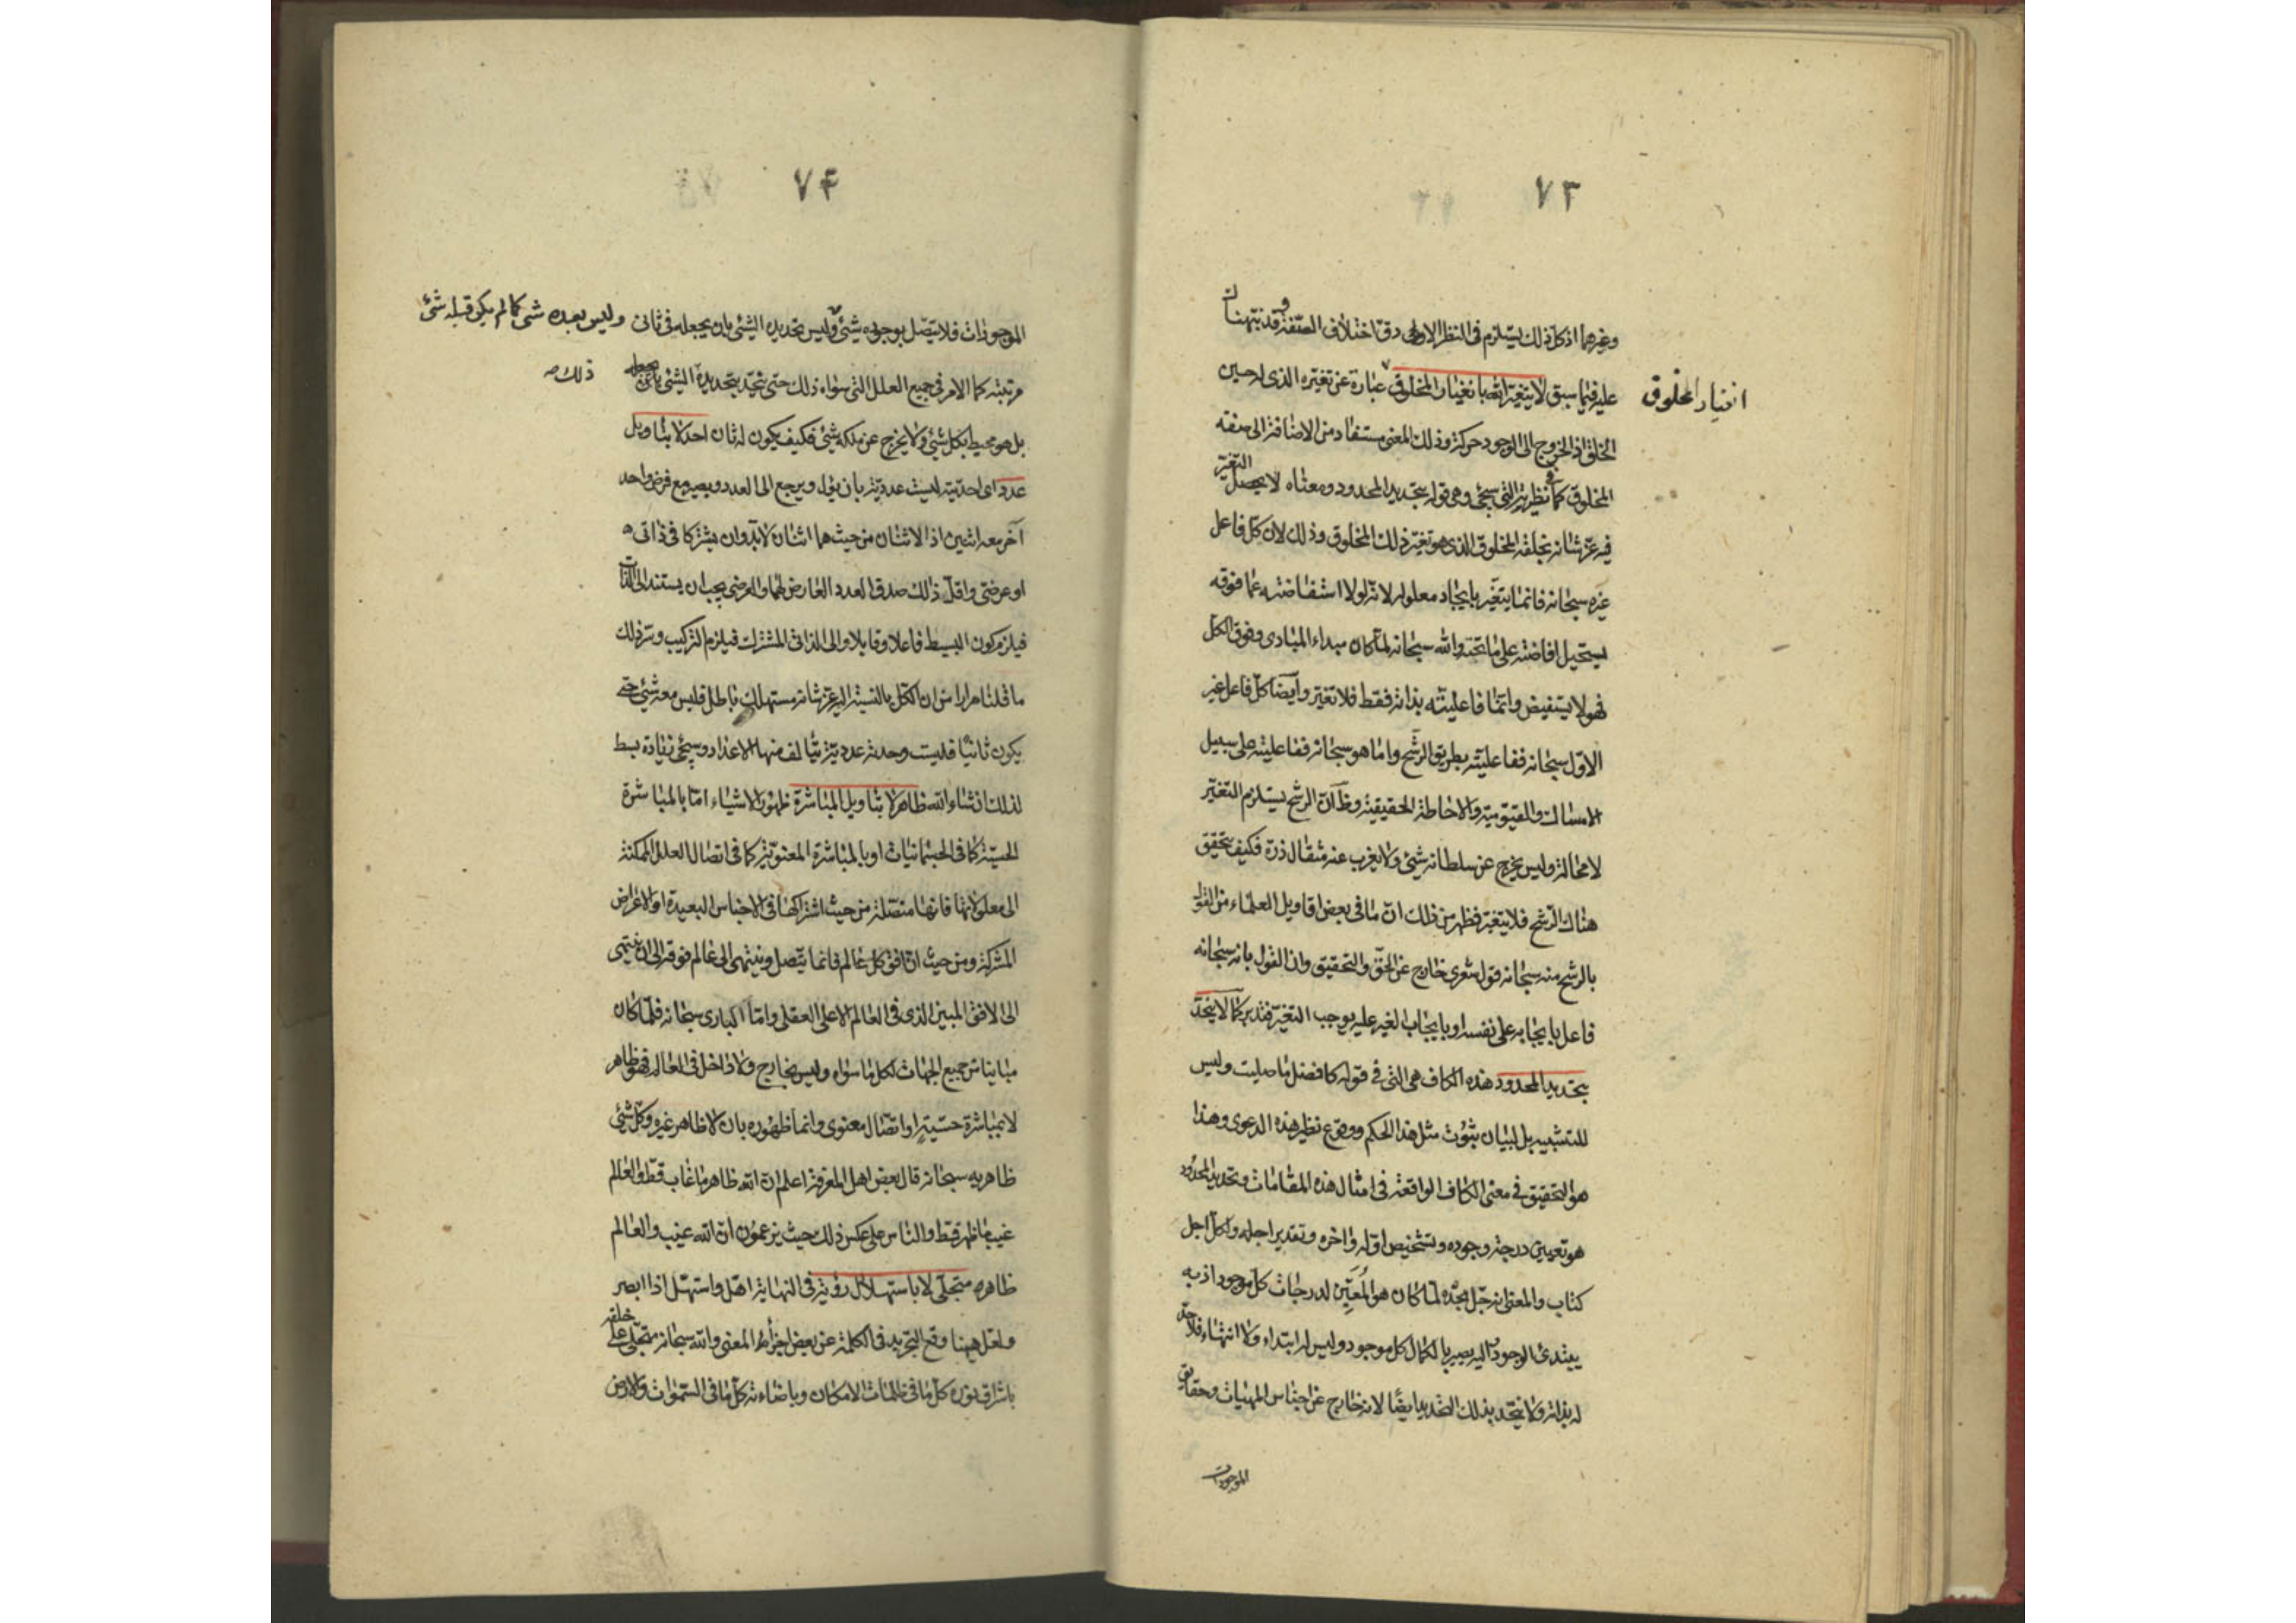 ٧٣
وغيرهما اذ كل ذلك يستلزم فى النظر الاولى دق اختلاف الصفة وقد نبهناك
عليه فيما سبق لا يتغير الله بانغيار المخلوق عبارة عن تغيره الذى له حين
انغيار المخلوق
الخلق اذ الخروج الى الوجود حركة وذلك المعنى مستفاد من الاضافة الى صفة
المخلوق كما فى نظيرته التى سيجئ وهى قوله بتحديد المحدود ومعناه لا يحصل التغير
فيه عز شانه بخلقه المخلوق الذى هو تغير ذلك المخلوق وذلك لان كل فاعل
غيره سبحانه فانما يتغير بايجاد معلوله لانه لولا استفاضته عما فوقه
يستحيل افاضته على ما تحته والله سبحانه لما كان مبداء المبادى وفوق الكل
فهو لا يستفيض وانما فاعليته بذاته فقط فلا تغير وايضا كل فاعل غير
الاول سبحانه ففاعليته بطريق الرشح واما هو سبحانه ففاعليته على سبيل
الامساك والقيومية والاحاطة الحقيقية وظ ان الرشح يستلزم التغير
لا محالة وليس يخرج عن سلطانه شئ ولا يعزب عنه مثقال ذرة فكيف يتحقق
هناك الرشح فلا يتغير فظهر من ذلك ان ما فى بعض اقاويل العلماء من القول
بالرشح منه سبحانه قول شعرى خارج عن الحق والتحقيق وان القول بانه سبحانه
فاعل بايجابه على نفسه او بايجاب الغير عليه يوجب التغير فتدبر كما لا يتحد
بتحديد المحدود هذه الكاف هى التى فى قوله كافضل ما صليت وليس
للتشبيه بل لبيان ثبوت مثل هذا الحكم ووقوع نظير هذه الدعوى وهذا
هو التحقيق فى معنى الكاف الواقعة فى امثال هذه المقامات وتحديد المحدود
هو تعيين درجة وجوده وتشخيص اوله واخره وتقدير اجله ولكل اجل
كتاب والمعنى انه جل مجده لما كان هو المعين لدرجات كل موجود اذ به
يبتدى الوجود واليه يصير بالكمال كل موجود وليس له ابتداء ولا انتهاء فلا حد
له بذاته ولا يتحد بذلك التحديد ايضا لانه خارج عن اجناس المهيات وحقايق
الموجودات
٧٤
الموجودات فلا يتصل بوجوده شئ وليس تحديده الشئ بان يجعله فى ثانى
وليس بعده شئ كما لم يكن قبله شئ
مرتبته كما الامر فى جميع العلل التى سواه ذلك حتى يتحد بتحديده الشئ بان يجعل
ذلك صه
بل هو محيط بكل شئ ولا يخرج عن ملكه شئ فكيف يكون له ثان احد لا بتاويل
عدد اى احديته ليست عددية بان يؤل ويرجع الى العدد ويصير مع فرض واحد
آخر معه اثنين اذ الاثنان من حيث هما اثنان لابد وان يشتركا فى ذاتى
او عرضى واقل ذلك صدق العدد العارض لهما والعرضى يجب ان يستند الى الذات
فيلزم كون البسيط فاعلا وقابلا والى الذاتى المشترك فيلزم التركيب وسر ذلك
ما قلنا مرارا من ان الكل بالنسبة اليه عز شانه مستهلك باطل فليس معه شئ حتى
يكون ثانيا فليست وحدته عددية يتالف منها الاعداد وسيجئ زيادة بسط
لذلك انشاء الله ظاهر لا بتاويل المباشرة ظهور الاشياء اما بالمباشرة
الحسية كما فى الجسمانيات او بالمباشرة المعنوية كما فى اتصال العلل الممكنة
الى معلولاتها فانها متصلة من حيث اشتراكها فى الاجناس البعيدة او الاعراض
المشتركة ومن حيث ان افق كل عالم فانما يتصل وينتهى الى عالم فوقه الى ان ينتهى
الى الافق المبين الذى فى العالم الاعلى العقلى واما البارى سبحانه فلما كان
مباينا من جميع الجهات لكل ما سواه وليس بخارج ولا داخل فى العالم فهو ظاهر
لا بمباشرة حسية او اتصال معنوى وانما ظهوره بان لا ظاهر غيره وكل شئ
ظاهر به سبحانه قال بعض اهل المعرفة اعلم ان الله ظاهر ما غاب قط والعالم
غيب ما ظهر قط والناس على عكس ذلك حيث يزعمون ان الله غيب والعالم
ظاهر متجلى لا باستهلال رؤية فى النهاية اهل واستهل اذا ابصر
ولعل ههنا وقع التجريد فى الكلمة عن بعض اجزاء المعنى والله سبحانه متجلى على خلقه
باشراق نوره كل ما فى ظلمات الامكان وباضاءته كل ما فى السموات والارض